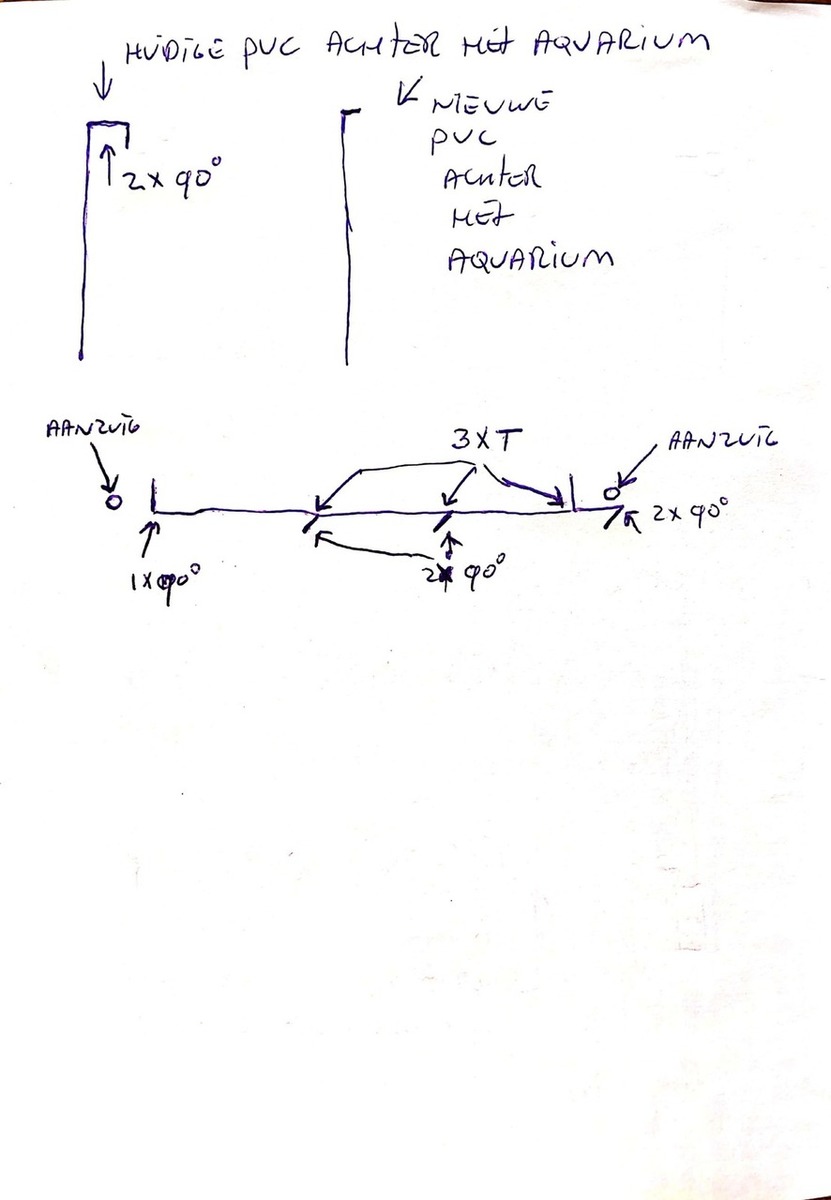 HUDIGE PVC ACHTER HET AQUARIUM
NIEUWE
PVC
ACHTER
HET
AQUARIUM
2x 90°
AANZUIG
3XT
AANZUIG
2x 90°
1x90°
2x 90°